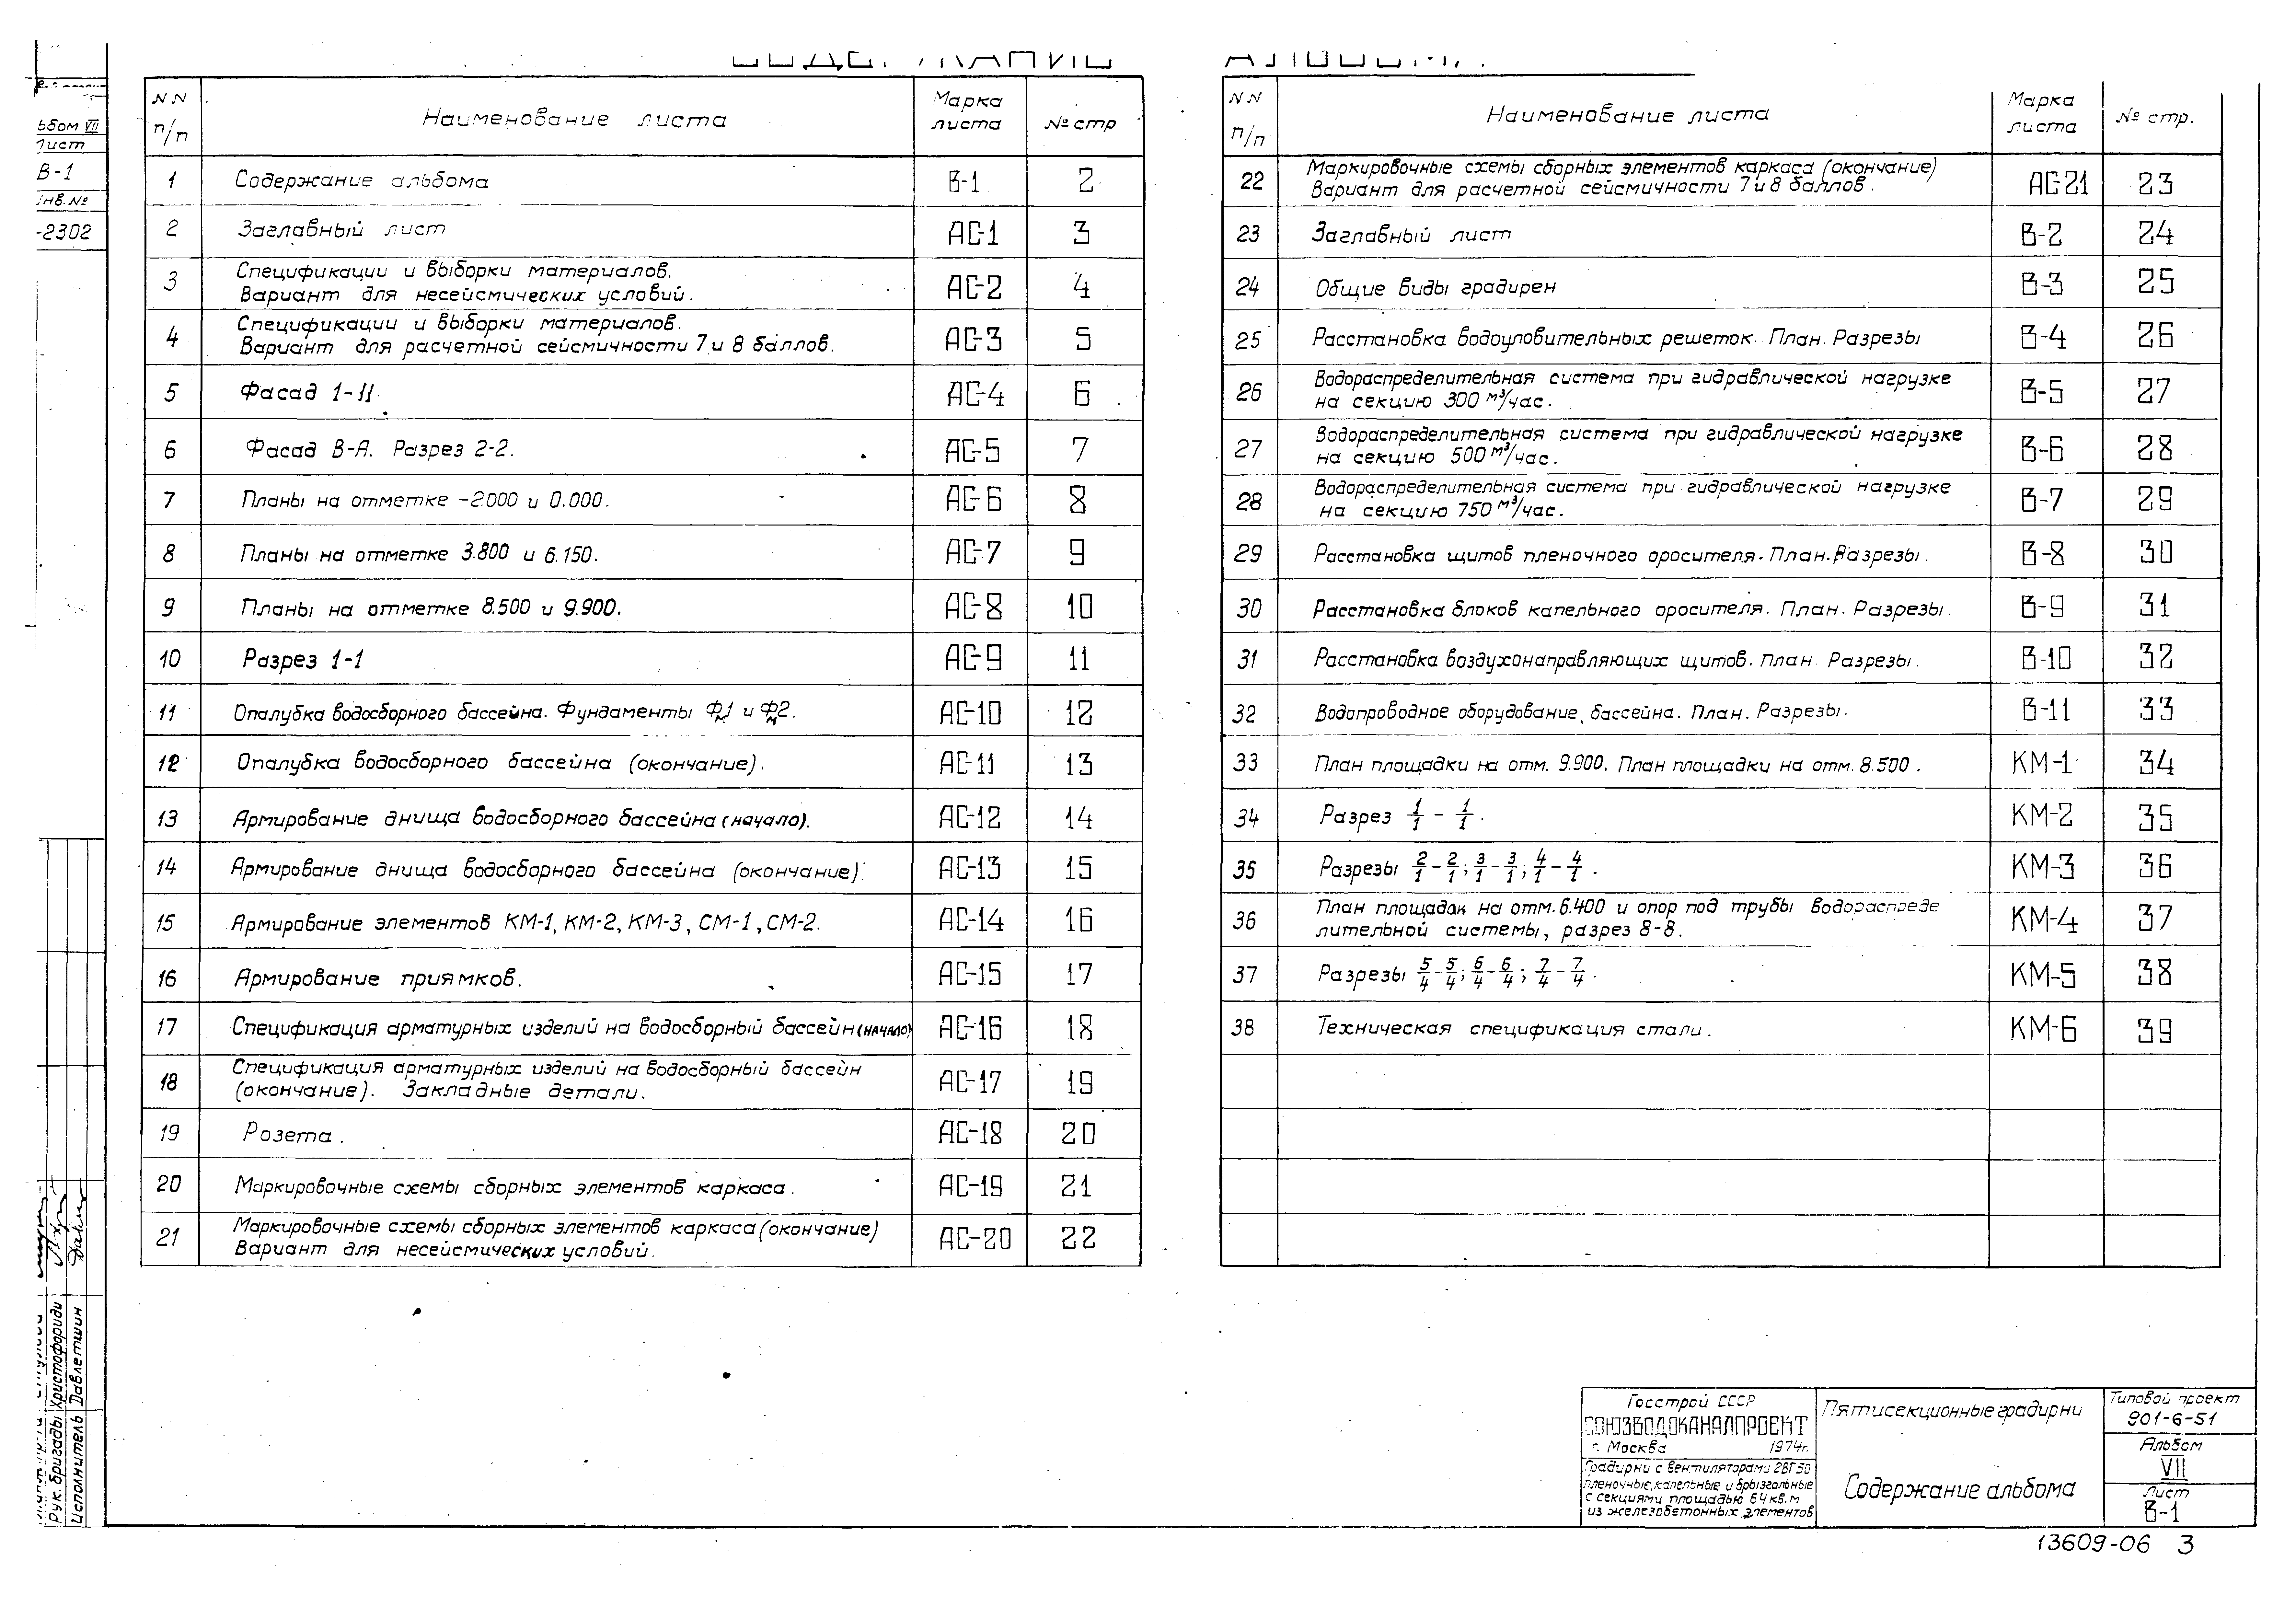 NN п/п Наименование листа Марка листа № стр
1 Содержание альбома В-1 2
2 Заглавный лист АС-1 3
3 Спецификации и выборки материалов.
Вариант для несейсмических условий. АС-2 4
4 Спецификации и выборки материалов.
Вариант для расчетной сейсмичности 7 и 8 баллов. АС-3 5
5 Фасад 1-11 АС-4 6
6 Фасад В-А. Разрез 2-2. АС-5 7
7 Планы на отметке -2.000 и 0.000. АС-6 8
8 Планы на отметке 3.800 и 6.150. АС-7 9
9 Планы на отметке 8.500 и 9.900. АС-8 10
10 Разрез 1-1 АС-9 11
11 Опалубка водосборного бассейна. Фундаменты Фм1 и Фм2. АС-10 12
12 Опалубка водосборного бассейна (окончание). АС-11 13
13 Армирование днища водосборного бассейна (начало). АС-12 14
14 Армирование днища водосборного бассейна (окончание). АС-13 15
15 Армирование элементов КМ-1, КМ-2, КМ-3, СМ-1, СМ-2. АС-14 16
16 Армирование приямков. АС-15 17
17 Спецификация арматурных изделий на водосборный бассейн (начало) АС-16 18
18 Спецификация арматурных изделий на водосборный бассейн
(окончание). Закладные детали. АС-17 19
19 Розета. АС-18 20
20 Маркировочные схемы сборных элементов каркаса. АС-19 21
21 Маркировочные схемы сборных элементов каркаса (окончание)
Вариант для несейсмических условий. АС-20 22
NN п/п Наименование листа Марка листа № стр.
22 Маркировочные схемы сборных элементов каркаса (окончание)
Вариант для расчетной сейсмичности 7 и 8 баллов. АС-21 23
23 Заглавный лист В-2 24
24 Общие виды градирен В-3 25
25 Расстановка водоуловительных решеток. План. Разрезы В-4 26
26 Водораспределительная система при гидравлической нагрузке
на секцию 300 м³/час. В-5 27
27 Водораспределительная система при гидравлической нагрузке
на секцию 500 м³/час. В-6 28
28 Водораспределительная система при гидравлической нагрузке
на секцию 750 м³/час. В-7 29
29 Расстановка щитов пленочного оросителя. План. Разрезы. В-8 30
30 Расстановка блоков капельного оросителя. План. Разрезы. В-9 31
31 Расстановка воздухонаправляющих щитов. План. Разрезы. В-10 32
32 Водопроводное оборудование бассейна. План. Разрезы. В-11 33
33 План площадки на отм. 9.900. План площадки на отм. 8.500. КМ-1 34
34 Разрез 1/1 - 1/1. КМ-2 35
35 Разрезы 2/1 - 2/1; 3/1 - 3/1; 4/1 - 4/1. КМ-3 36
36 План площадок на отм. 6.400 и опор под трубы водораспреде
лительной системы, разрез 8-8. КМ-4 37
37 Разрезы 5/4 - 5/4; 6/4 - 6/4; 7/4 - 7/4. КМ-5 38
38 Техническая спецификация стали. КМ-6 39
ьбом VII
Лист
В-1
Инв.№
-2302
Рук. бригады Христофориди
Исполнитель Давлетшин
Госстрой СССР
СОЮЗВОДОКАНАЛПРОЕКТ
г. Москва 1974г.
Градирни с вентиляторами 2ВГ50
пленочные, капельные и брызгальные
с секциями площадью 64 кв.м
из железобетонных элементов
Пятисекционные градирни
Содержание альбома
Типовой проект
901-6-51
Альбом
VII
Лист
В-1
13609-06 3